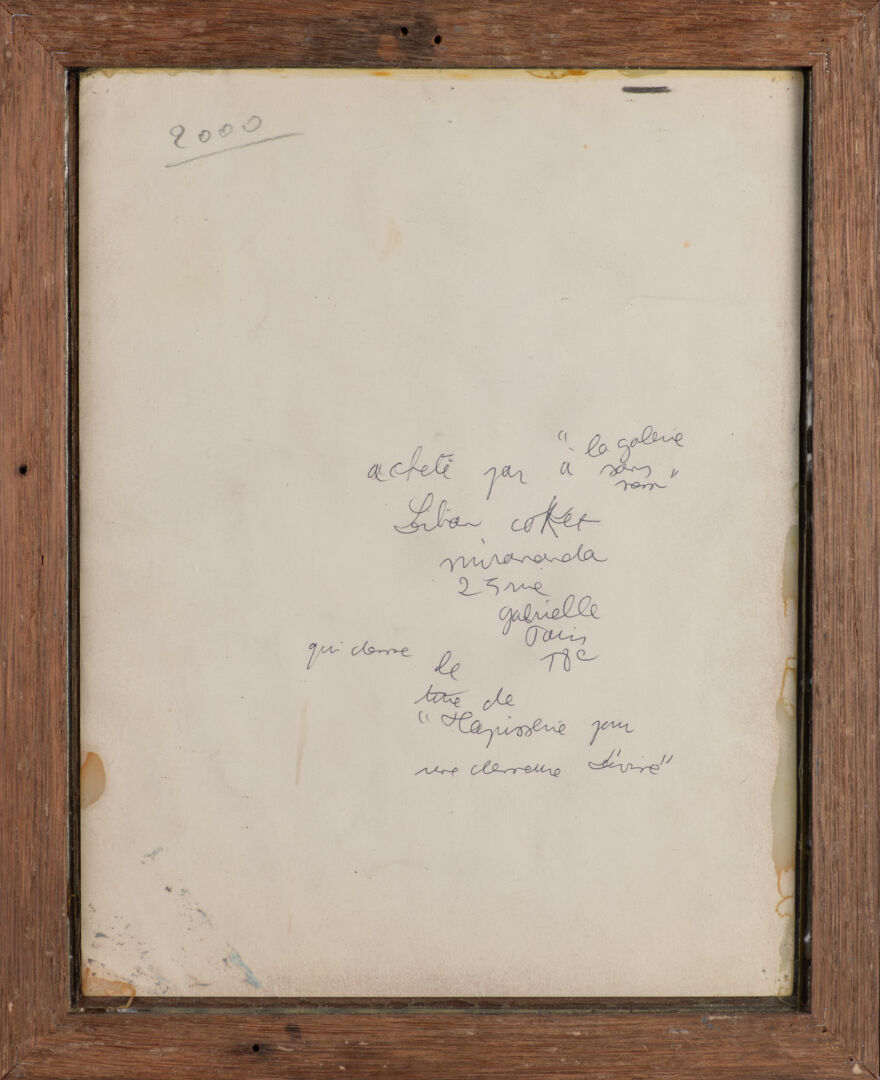 2000
"la galerie
acheté par à sans
nom"
mirananda
25 rue
gabrielle
Paris
18e
qui donne
le
titre de
"Tapisserie pour
une demeure